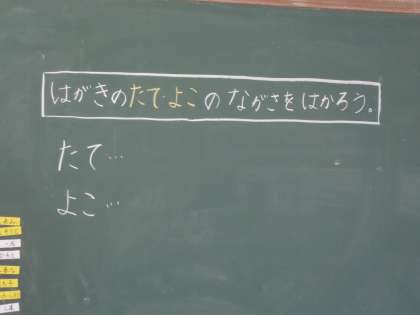 はがきのたて・よこの ながさを はかろう。
たて…
よこ…